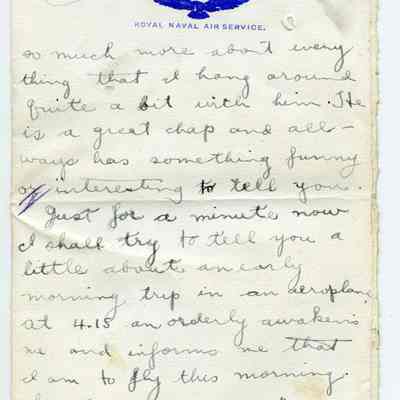 ROYAL NAVAL AIR SERVICE.
so much more about every
thing that I hang around
quite a bit with him. He
is a great chap and all-
ways has something funny
or interesting to tell you.
Just for a minute now
I shall try to tell you a
little about an early
morning trip in an aeroplane
at 4.15 an orderly awakens
me and informs me that
I am to fly this morning.